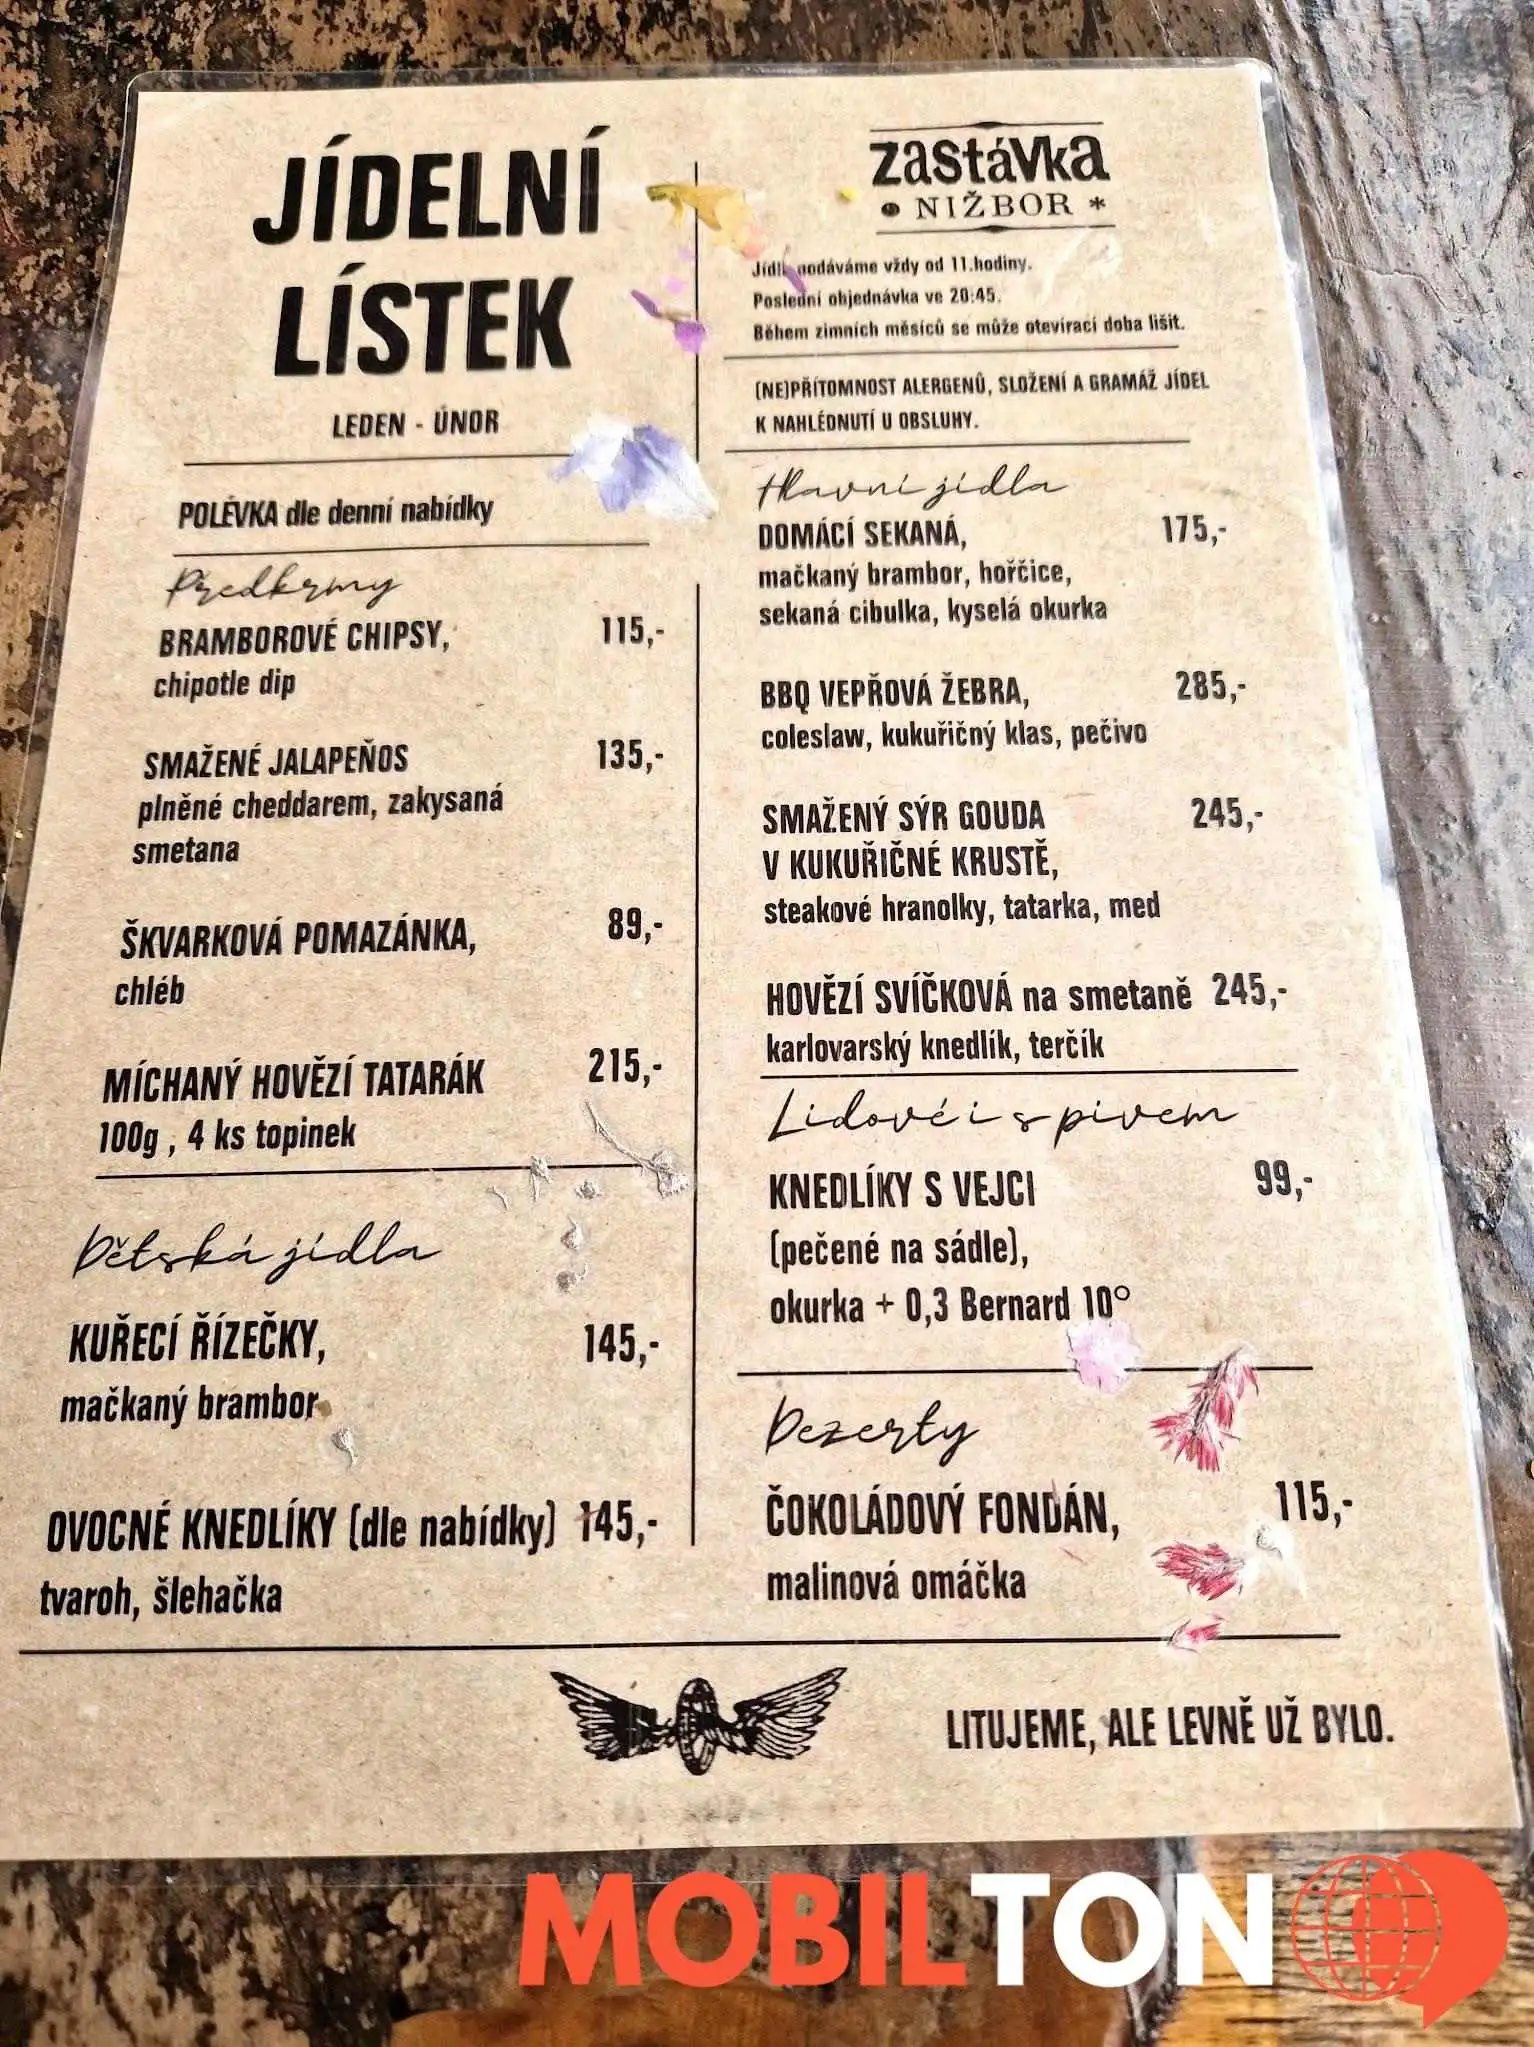 JÍDELNÍ
LÍSTEK
LEDEN - ÚNOR
POLÉVKA dle denní nabídky
Předkrmy
BRAMBOROVÉ CHIPSY, 115,-
chipotle dip
SMAŽENÉ JALAPEŇOS 135,-
plněné cheddarem, zakysaná
smetana
ŠKVARKOVÁ POMAZÁNKA, 89,-
chléb
MÍCHANÝ HOVĚZÍ TATARÁK 215,-
100g , 4 ks topinek
Dětská jídla
KUŘECÍ ŘÍZEČKY, 145,-
mačkaný brambor
OVOCNÉ KNEDLÍKY (dle nabídky) 145,-
tvaroh, šlehačka
zastávka
NIŽBOR *
podáváme vždy od 11.hodiny.
Poslední objednávka ve 20:45.
Během zimních měsíců se může otevírací doba lišit.
(NE)PŘÍTOMNOST ALERGENŮ, SLOŽENÍ A GRAMÁŽ JÍDEL
K NAHLÉDNUTÍ U OBSLUHY.
Hlavní jídla
DOMÁCÍ SEKANÁ, 175,-
mačkaný brambor, hořčice,
sekaná cibulka, kyselá okurka
BBQ VEPŘOVÁ ŽEBRA, 285,-
coleslaw, kukuřičný klas, pečivo
SMAŽENÝ SÝR GOUDA 245,-
V KUKUŘIČNÉ KRUSTĚ,
steakové hranolky, tatarka, med
HOVĚZÍ SVÍČKOVÁ na smetaně 245,-
karlovarský knedlík, terčík
Lidové i s pivem
KNEDLÍKY S VEJCI 99,-
(pečené na sádle),
okurka + 0,3 Bernard 10°
Dezerty
ČOKOLÁDOVÝ FONDÁN, 115,-
malinová omáčka
LITUJEME, ALE LEVNĚ UŽ BYLO.
MOBILTON